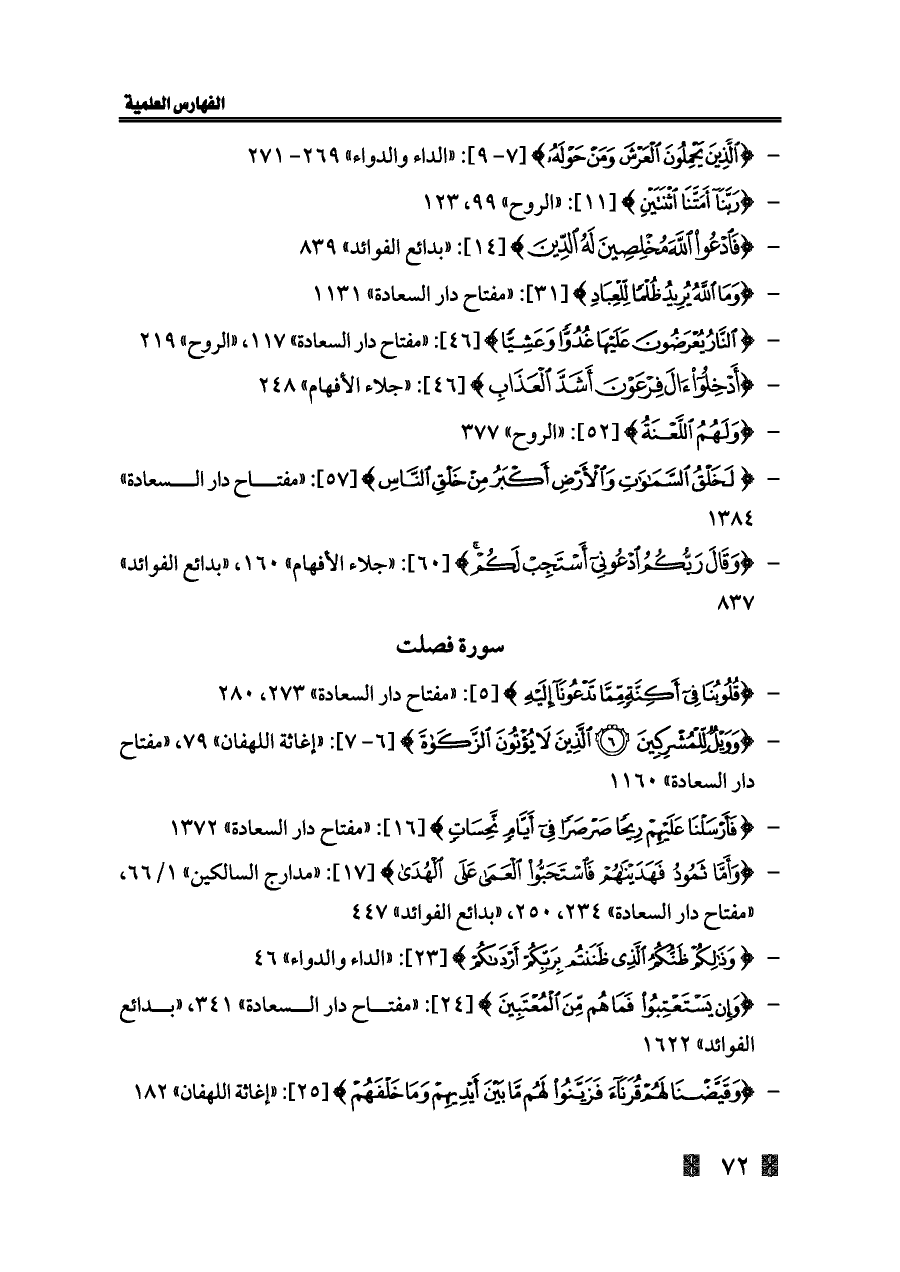 الفهارس العلمية
- ﴿ٱلَّذِينَ يَحْمِلُونَ ٱلْعَرْشَ وَمَنْ حَوْلَهُۥ﴾ [٧- ٩]: «الداء والدواء» ٢٦٩- ٢٧١
- ﴿رَبَّنَآ أَمَتَّنَا ٱثْنَتَيْنِ ﴾ [١١]: «الروح» ٩٩، ١٢٣
- ﴿فَٱدْعُوا۟ ٱللَّهَ مُخْلِصِينَ لَهُ ٱلدِّينَ ﴾ [١٤]: «بدائع الفوائد» ٨٣٩
- ﴿وَمَا ٱللَّهُ يُرِيدُ ظُلْمًا لِّلْعِبَادِ ﴾ [٣١]: «مفتاح دار السعادة» ١١٣١
- ﴿ ٱلنَّارُ يُعْرَضُونَ عَلَيْهَا غُدُوًّا وَعَشِيًّا﴾ [٤٦]: «مفتاح دار السعادة» ١١٧، «الروح» ٢١٩
- ﴿أَدْخِلُوٓا۟ ءَالَ فِرْعَوْنَ أَشَدَّ ٱلْعَذَابِ ﴾ [٤٦]: «جلاء الأفهام» ٢٤٨
- ﴿وَلَهُمُ ٱللَّعْنَةُ﴾ [٥٢]: «الروح» ٣٧٧
- ﴿ لَخَلْقُ ٱلسَّمَٰوَٰتِ وَٱلْأَرْضِ أَكْبَرُ مِنْ خَلْقِ ٱلنَّاسِ ﴾ [٥٧]: «مفتـــاح دار الـــسعادة»
١٣٨٤
- ﴿وَقَالَ رَبُّكُمُ ٱدْعُونِىٓ أَسْتَجِبْ لَكُمْ ۚ﴾ [٦٠]: «جلاء الأفهام» ١٦٠، «بدائع الفوائد»
٨٣٧
سورة فصلت
- ﴿قُلُوبُنَا فِىٓ أَكِنَّةٍ مِّمَّا تَدْعُونَآ إِلَيْهِ ﴾ [٥]: «مفتاح دار السعادة» ٢٧٣، ٢٨٠
- ﴿وَوَيْلٌ لِّلْمُشْرِكِينَ ۝٦ ٱلَّذِينَ لَا يُؤْتُونَ ٱلزَّكَوٰةَ ﴾ [٦- ٧]: «إغاثة اللهفان» ٧٩، «مفتاح
دار السعادة» ١١٦٠
- ﴿فَأَرْسَلْنَا عَلَيْهِمْ رِيحًا صَرْصَرًا فِىٓ أَيَّامٍ نَّحِسَاتٍ ﴾ [١٦]: «مفتاح دار السعادة» ١٣٧٢
- ﴿وَأَمَّا ثَمُودُ فَهَدَيْنَٰهُمْ فَٱسْتَحَبُّوا۟ ٱلْعَمَىٰ عَلَى ٱلْهُدَىٰ﴾ [١٧]: «مدارج السالكين» ١/ ٦٦،
«مفتاح دار السعادة» ٢٣٤، ٢٥٠، «بدائع الفوائد» ٤٤٧
- ﴿ وَذَٰلِكُمْ ظَنُّكُمُ ٱلَّذِى ظَنَنتُم بِرَبِّكُمْ أَرْدَىٰكُمْ ﴾ [٢٣]: «الداء والدواء» ٤٦
- ﴿وَإِن يَسْتَعْتِبُوا۟ فَمَا هُم مِّنَ ٱلْمُعْتَبِينَ ﴾ [٢٤]: «مفتـــاح دار الـــسعادة» ٣٤١، «بـــدائع
الفوائد» ١٦٢٢
- ﴿وَقَيَّضْنَا لَهُمْ قُرَنَآءَ فَزَيَّنُوا۟ لَهُم مَّا بَيْنَ أَيْدِيهِمْ وَمَا خَلْفَهُمْ ﴾ [٢٥]: «إغاثة اللهفان» ١٨٢
٧٢